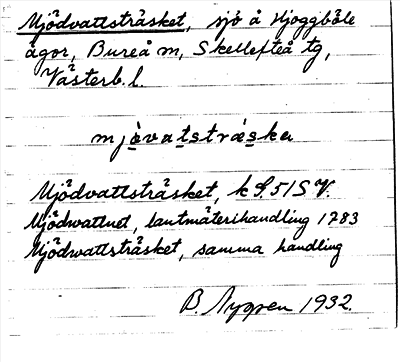 Mjödvattsträsket, sjö å Hjoggböle
ägor, Bureå sn, Skellefteå tg,
Västerb. l.
mjövatsträska
Mjödvattsträsket, k S. 51 S V.
Mjödwattnet, lantmäterihandling 1783
Mjödwattsträsket, samma handling
B. Nygren 1932.